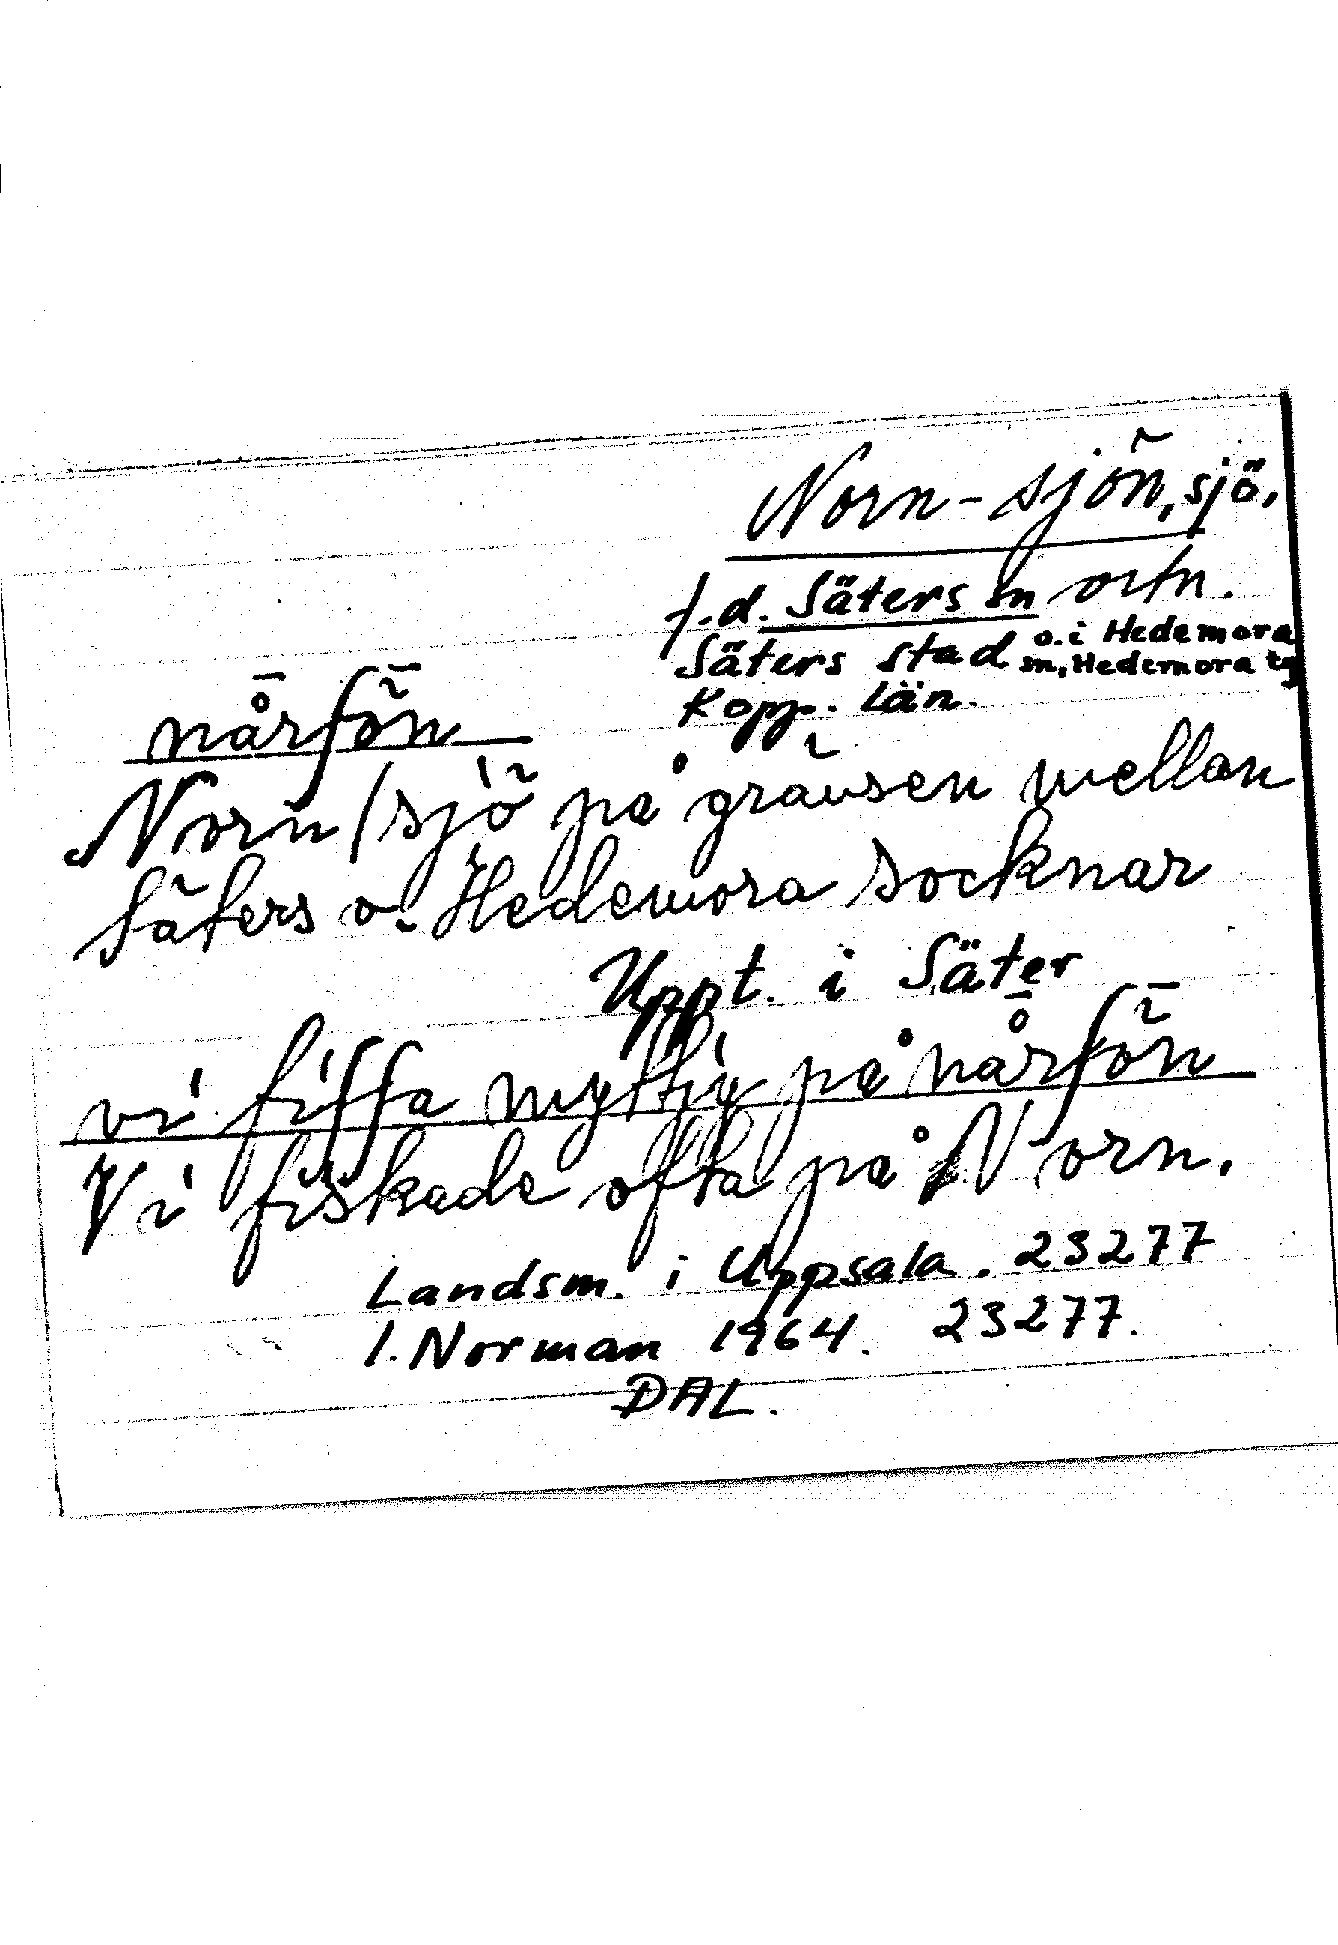 Norn-sjön, sjö.
f.d. Säters sn ortn.
Säters stad o. i Hedemora
sn, Hedemora tg
Kopp. län.
nårʃön
Norn (sjö på gränsen mellan
Säters o. Hedemora socknar
Uppt. i Säter
vi fiʃʃa på nårʃön
Vi fiskade ofta på Norn.
Landsm. i Uppsala. 23277
I. Norman 1964. 23277.
DAL.